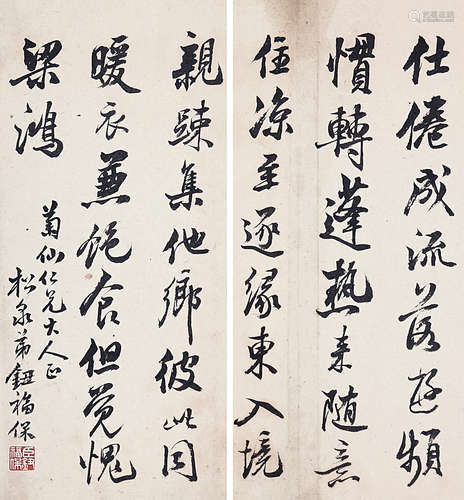 仕倦成流落遊頻
慣轉蓬熱来随意
住涼至逐緣東入境
親踈集他鄉彼此同
暖衣兼飽食但覺愧
梁鴻
菊仙仁兄大人正
松泉弟鈕福保